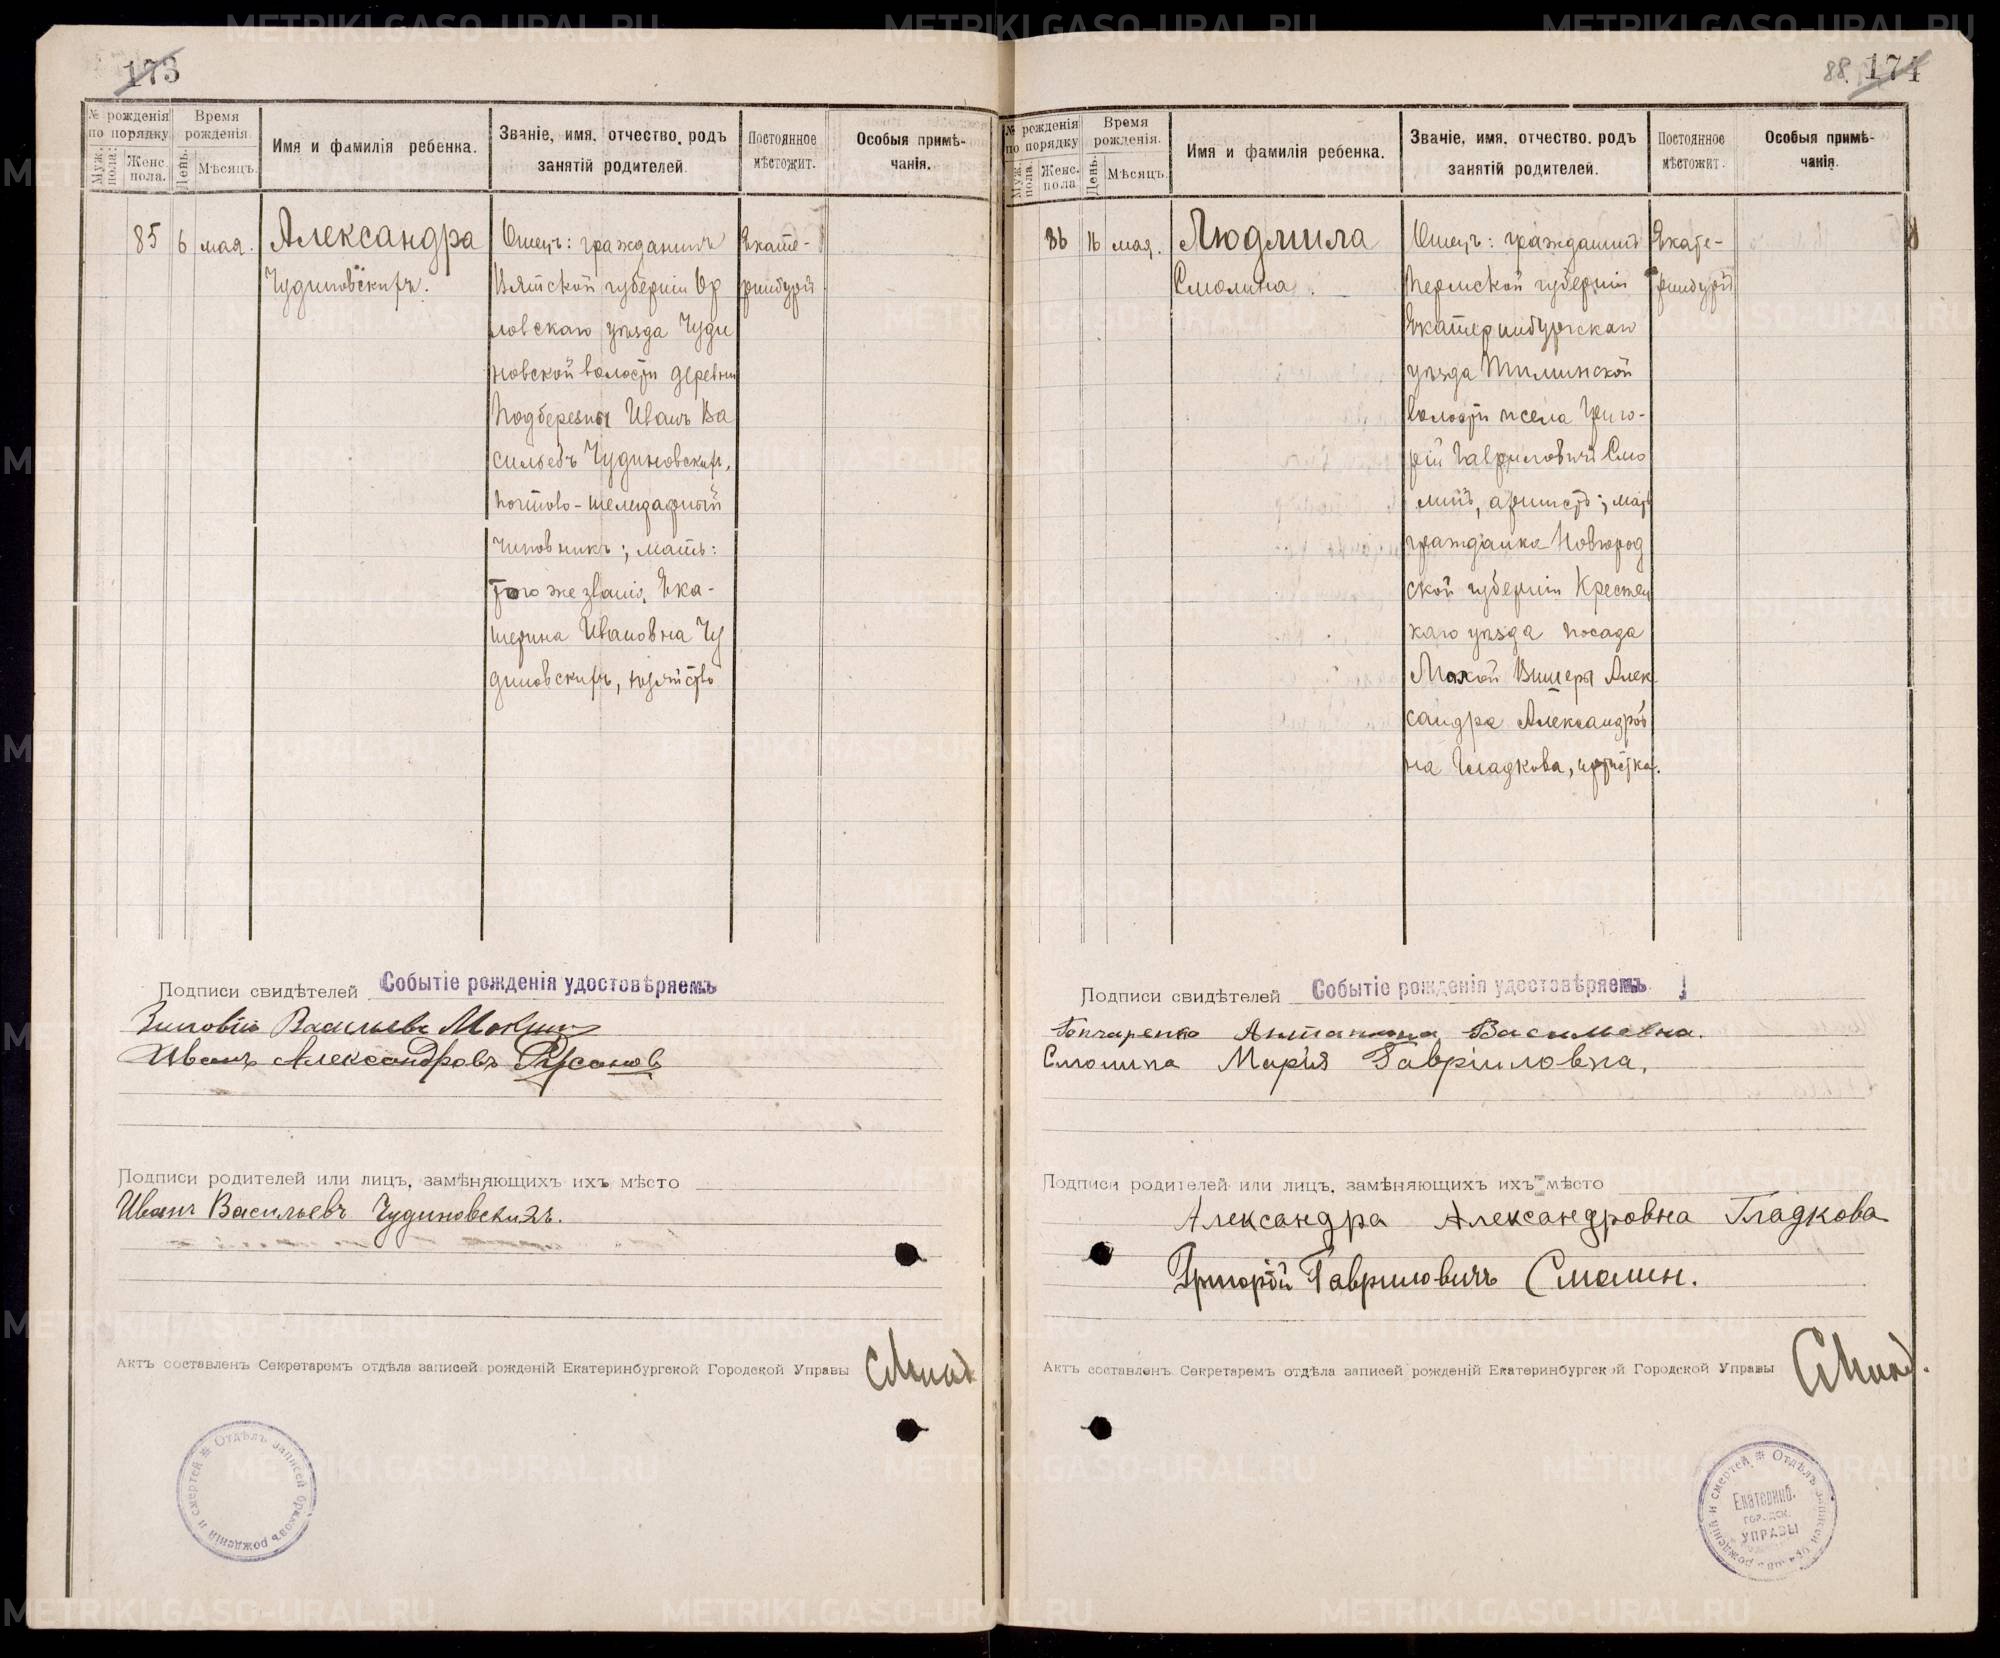 173
№ рожденія по порядку
Муж. пола.
Женс. пола.
Время рожденія.
День.
Мѣсяцъ.
Имя и фамилія ребенка.
Званіе, имя, отчество, родъ
занятій родителей.
Постоянное
мѣстожит.
Особыя примѣ-
чанія.
85 6 мая.
Александра
Чудиновскихъ.
Отецъ: гражданинъ
Вятской губерніи Ор
ловскаго уѣзда Чуди
новской волости деревни
Подберезны Иванъ Ва
сильевъ Чудиновскихъ,
почтово-телеграфный
чиновникъ; мать:
того же званія, Ека-
терина Ивановна Чу
диновскихъ, хозяйство
Екате-
ринбургъ
Подписи свидѣтелей Событіе рожденія удостовѣряемъ
Зиновій Васильевъ
Иванъ Александровъ Русановъ
Подписи родителей или лицъ, замѣняющихъ ихъ мѣсто
Иванъ Васильевъ Чудиновскихъ.
Актъ составленъ Секретаремъ отдѣла записей рожденій Екатеринбургской Городской Управы
Отдѣлъ записей браковъ рожденій и смертей
88. 174
№ рожденія по порядку
Муж. пола.
Женс. пола
Время рожденія.
День.
Мѣсяцъ.
Имя и фамилія ребенка.
Званіе, имя, отчество. родъ
занятій родителей.
Постоянное
мѣстожит.
Особыя примѣ-
чанія.
86 16 мая.
Людмила
Смолина.
Отецъ: гражданинъ
Пермской губерніи
Екатеринбургскаго
уѣзда
волости села Григо-
рій Гавриловичъ Смо
линъ, артистъ; мать
гражданка Новгород
ской губерніи Крестец
каго уѣзда посада
Малой Вишеры Алек
сандра Александров
на Гладкова, артистка.
Екате-
ринбургъ
Подписи свидѣтелей Событіе рожденія удостовѣряемъ
Гончаренко Антонина Васильевна.
Смолина Марія Гавріиловна.
Подписи родителей или лицъ, замѣняющихъ ихъ мѣсто
Александра Александровна Гладкова
Григорій Гавриловичъ Смолин.
Актъ составленъ Секретаремъ отдѣла записей рожденій Екатеринбургской Городской Управы
Отдѣлъ записей браковъ рожденій и смертей
Екатеринб.
городск.
УПРАВЫ
METRIKI.GASO-URAL.RU